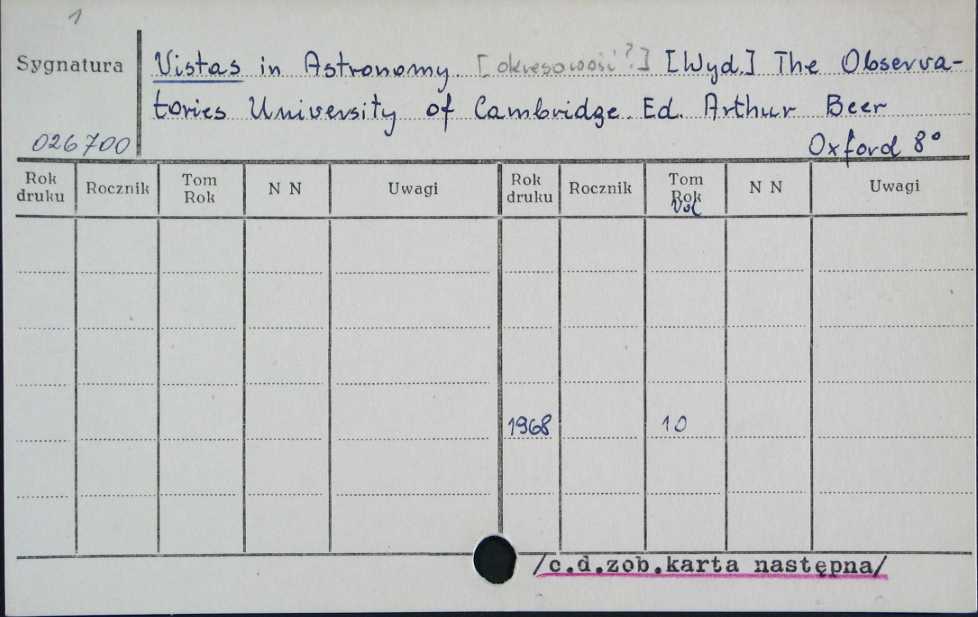 1
Sygnatura Vistas in Astronomy. [okresowość?] [Wyd.] The Observa-
tories University of Cambridge. Ed. Arthur Beer
026700 Oxford 8°
Rok druku Rocznik Tom Rok N N Uwagi Rok druku Rocznik Tom Rok Vol N N Uwagi
1968 10
/c.d.zob.karta następna/